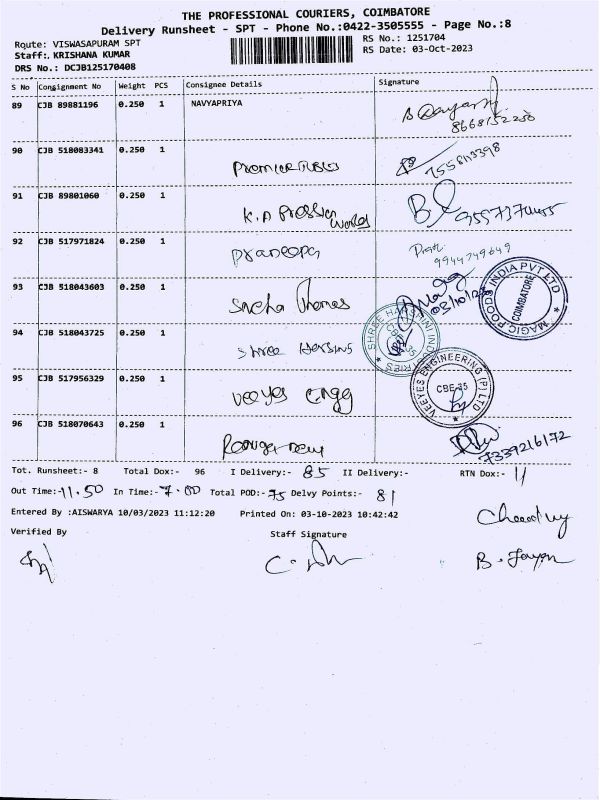 THE PROFESSIONAL COURIERS, COIMBATORE
Delivery Runsheet - SPT - Phone No.:0422-3505555 - Page No.:8
Route: VISWASAPURAM SPT
RS No.: 1251704
Staff:. KRISHANA KUMAR
RS Date: 03-Oct-2023
DRS No.: DCJB125170408
S No Consignment No Weight PCS Consignee Details Signature
89 CJB 89881196 0.250 1 NAVYAPRIYA
8668152250
90 CJB 518083341 0.250 1 Premier Tubes
7558113398
91 CJB 89801060 0.250 1 K.A Pression Works
92 CJB 517971824 0.250 1
9944749649
93 CJB 518043603 0.250 1
03/10/23
MAGIC FOODS INDIA PVT LTD
COIMBATORE
94 CJB 518043725 0.250 1 Shree
SHREE HARSHINI INDUSTRIES
95 CJB 517956329 0.250 1 Veeyes Engg
VEEYES ENGINEERING (P) LTD
CBE-35
96 CJB 518070643 0.250 1
7339216172
Tot. Runsheet:- 8 Total Dox:- 96 I Delivery:- 85 II Delivery:- RTN Dox:- 11
Out Time:- 11.50 In Time:- 7.00 Total POD:- 75 Delvy Points:- 81
Entered By :AISWARYA 10/03/2023 11:12:20 Printed On: 03-10-2023 10:42:42
Verified By Staff Signature